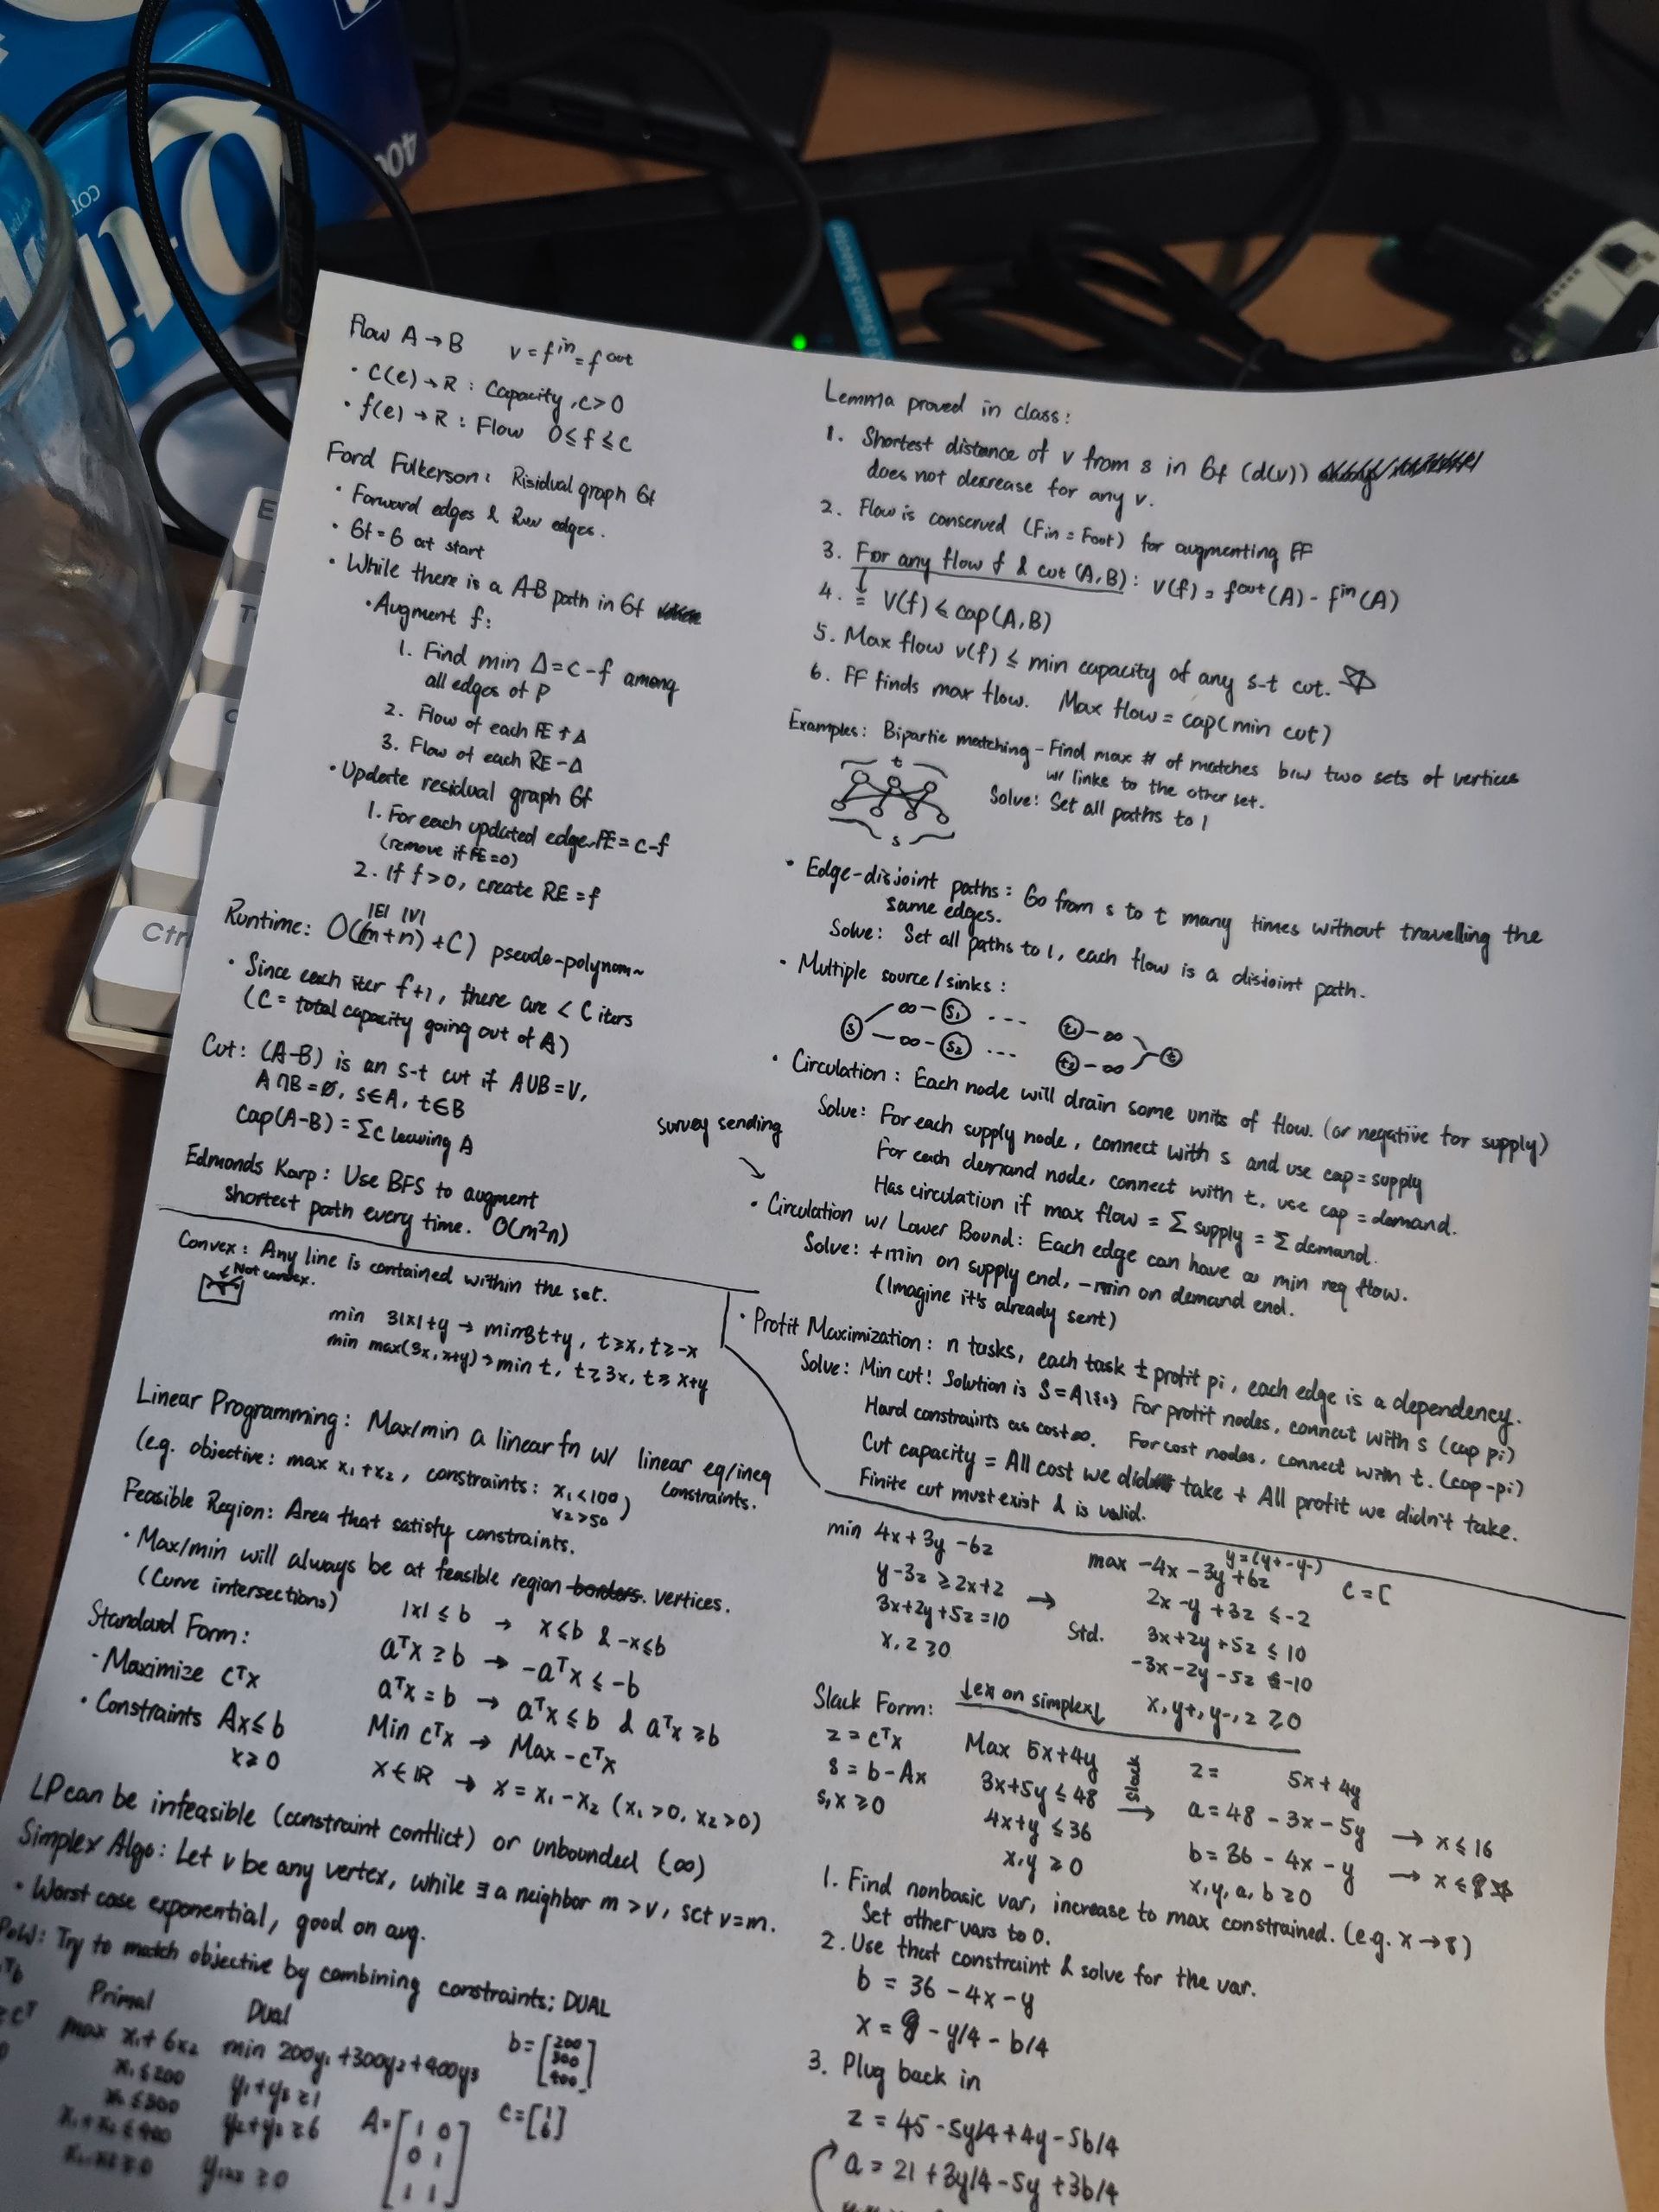 400
CO
Qti
3.0 Switch Selector
Ctr
Flow A → B   v = f^in = f^out
· C(e) → R : Capacity, c>0
· f(e) → R : Flow 0≤f≤c
Ford Fulkerson: Risidual graph Gf
· Forward edges & Rev edges.
· Gf = G at start
· While there is a A-B path in Gf
· Augment f:
1. Find min Δ=c-f among
all edges of P
2. Flow of each FE +Δ
3. Flow of each RE -Δ
· Update residual graph Gf
1. For each updated edge, FE = c-f
(remove if FE=0)
2. If f>0, create RE = f
|E| |V|
Runtime: O((m+n) +C) pseudo-polynom~
· Since each iter f+1, there are < C iters
(C = total capacity going out of A)
Cut: (A-B) is an s-t cut if A∪B=V,
A∩B=∅, s∈A, t∈B
cap(A-B) = Σc leaving A
Edmonds Karp: Use BFS to augment
shortest path every time. O(m²n)
Convex: Any line is contained within the set.
Not convex.
min 3|x|+y → min 3t+y, t≥x, t≥-x
min max(3x, x+y) → min t, t≥3x, t≥x+y
Linear Programming: Max/min a linear fn w/ linear eq/ineq
constraints.
(e.g. objective: max x₁+x₂, constraints: x₁<100
x₂>50)
Feasible Region: Area that satisfy constraints.
· Max/min will always be at feasible region borders. vertices.
(Curve intersections)
Standard Form:
· Maximize cᵀx
· Constraints Ax≤b
x≥0
|x| ≤ b → x≤b & -x≤b
aᵀx ≥ b → -aᵀx ≤ -b
aᵀx = b → aᵀx ≤ b & aᵀx ≥ b
Min cᵀx → Max -cᵀx
x∈ℝ → x = x₁-x₂ (x₁>0, x₂>0)
LP can be infeasible (constraint conflict) or unbounded (∞)
Simplex Algo: Let v be any vertex, while ∃ a neighbor m > v, set v=m.
· Worst case exponential, good on avg.
PoW: Try to match objective by combining constraints; DUAL
Primal   Dual
max x₁+6x₂   min 200y₁+300y₂+400y₃
x₁≤200   y₁+y₃≥1
x₂≤300   y₂+y₃≥6
x₁+x₂≤400
x₁,x₂≥0   y₁,₂,₃ ≥0
b = [200 300 400]
A = [1 0
0 1
1 1]
c = [1 6]
Lemma proved in class:
1. Shortest distance of v from s in Gf (d(v))
does not decrease for any v.
2. Flow is conserved (Fin = Fout) for augmenting FF
3. For any flow f & cut (A,B): v(f) = f^out(A) - f^in(A)
4. ↓ = V(f) ≤ cap(A,B)
5. Max flow v(f) ≤ min capacity of any s-t cut. ☆
6. FF finds max flow. Max flow = cap(min cut)
Examples: Bipartie matching - Find max # of matches b/w two sets of vertices
w/ links to the other set.
Solve: Set all paths to 1
t
s
· Edge-disjoint paths: Go from s to t many times without travelling the
same edges.
Solve: Set all paths to 1, each flow is a disjoint path.
· Multiple source/sinks:
s ∞ s₁ ... t₁ ∞ t
∞ s₂ ... t₂ ∞
· Circulation: Each node will drain some units of flow. (or negative for supply)
Solve: For each supply node, connect with s and use cap = supply
For each demand node, connect with t, use cap = demand.
Has circulation if max flow = Σ supply = Σ demand.
survey sending
· Circulation w/ Lower Bound: Each edge can have a min req flow.
Solve: +min on supply end, -min on demand end.
(Imagine it's already sent)
· Profit Maximization: n tasks, each task ± profit pi, each edge is a dependency.
Solve: Min cut! Solution is S=A\{s} For profit nodes, connect with s (cap pi)
Hard constraints as cost ∞. For cost nodes, connect with t. (cap -pi)
Cut capacity = All cost we did take + All profit we didn't take.
Finite cut must exist & is valid.
min 4x+3y-6z
y-3z ≥ 2x+2
3x+2y+5z=10
x, z ≥0
→
Std.
y=(y+-y-)
max -4x-3y+6z
2x-y+3z ≤ -2
3x+2y+5z ≤ 10
-3x-2y-5z ≤ -10
x, y+, y-, z ≥0
C = [
Slack Form: ↓ex on simplex↓
z = cᵀx
s = b-Ax
s,x ≥0
Max 5x+4y
3x+5y ≤48
4x+y ≤36
x,y ≥0
slack
→
z = 5x+4y
a = 48-3x-5y → x≤16
b = 36-4x-y → x≤9 ☆
x,y,a,b ≥0
1. Find nonbasic var, increase to max constrained. (e.g. x→8)
Set other vars to 0.
2. Use that constraint & solve for the var.
b = 36-4x-y
x = 9-y/4-b/4
3. Plug back in
z = 45-5y/4+4y-5b/4
a = 21+3y/4-5y+3b/4